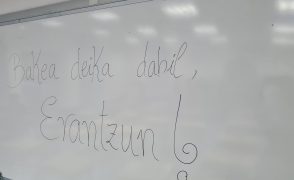 Bakea deika dabil,
Erantzun ¿